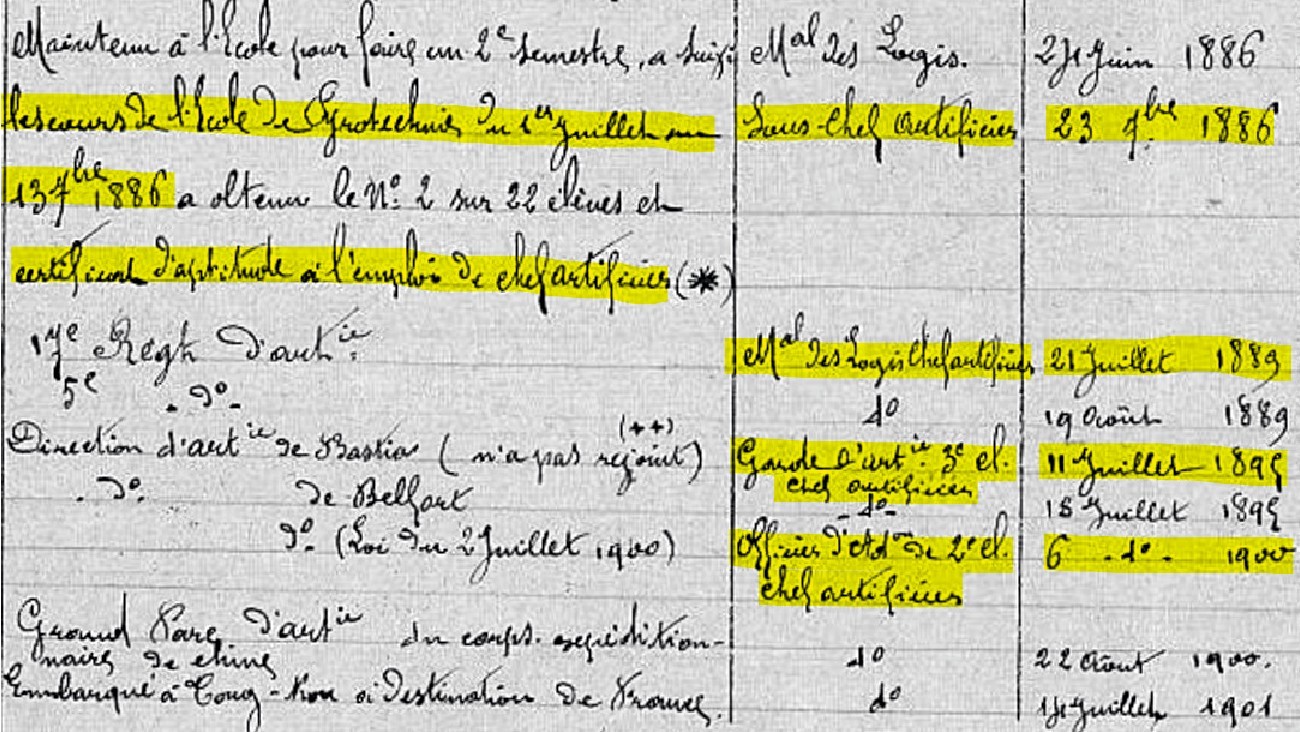 Maintenu à l'Ecole pour faire un 2e semestre, a suivi Mal des Logis. Juin 1886
les cours de l'Ecole de Pyrotechnie du 1er Juillet au Sous-Chef artificier 23 7bre 1886
13 7bre 1886 a obtenu le No. 2 sur 22 élèves et
certificat d'aptitude à l'emploi de chef artificier (*)
17e Régt d'artie Mal des Logis Chef artificier 21 Juillet 1889
5e - do - do 19 Août 1889
(++)
Direction d'artie de Bastia (n'a pas rejoint) Garde d'artie 3e cl. 11 Juillet 1895
chef artificier
- do - de Belfort - do - 15 Juillet 1895
do (Loi du 2 Juillet 1900) Officier d'Adon de 2e cl. 6 - do - 1900
chef artificier
Grand Parc d'artie du corps expédition-
naire de Chine do 22 Août 1900.
Embarqué à Tong-Kou à destination de France. do Juillet 1901